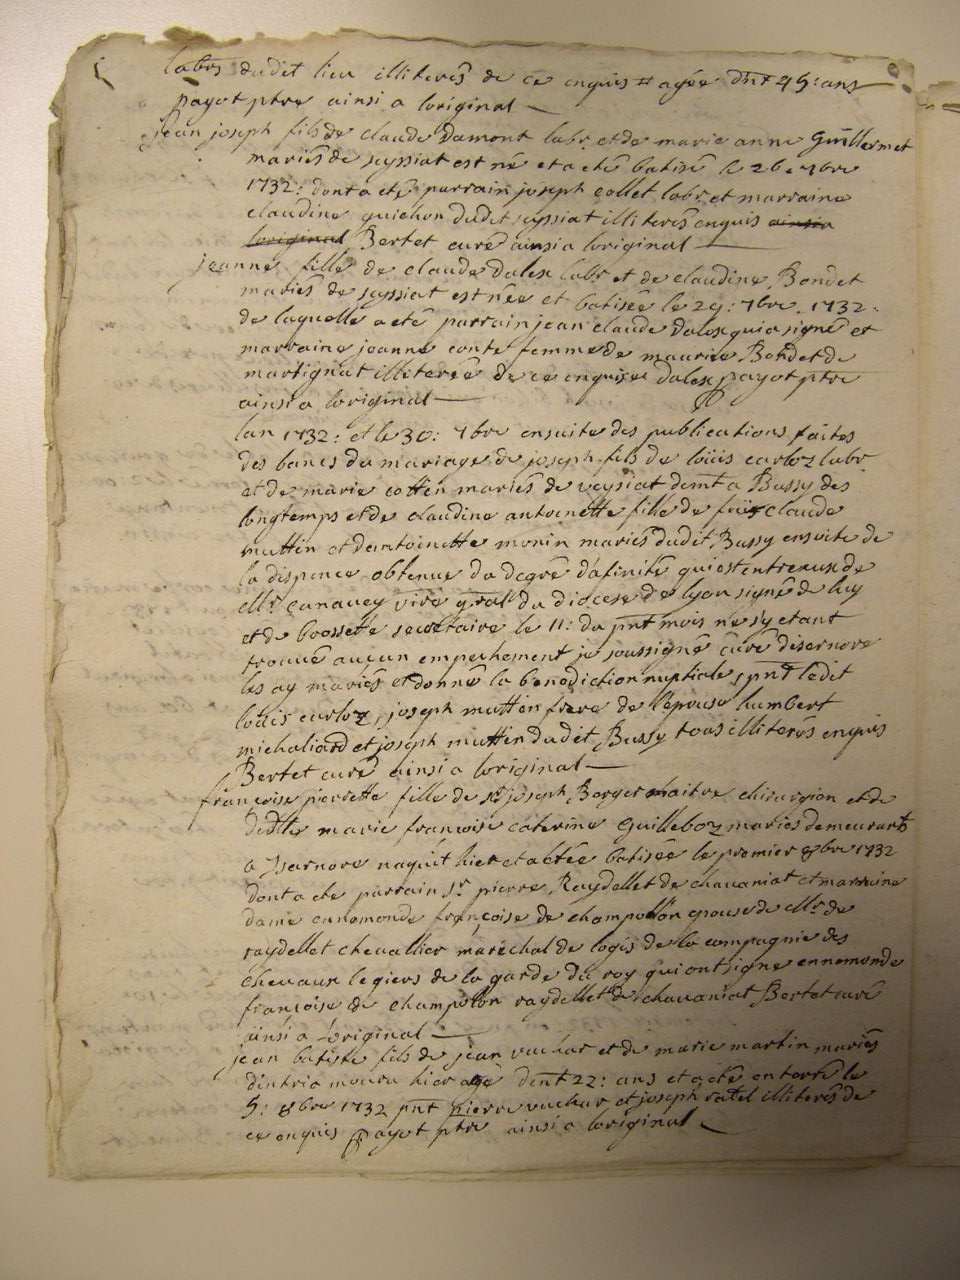 labrs dudit lieu illiterés de ce enquis # agée dnt 45: ans
payot ptre ainsi a loriginal
jean joseph fils de claude damont labr. et de marie anne Guillermet
mariés de syssiat est né et a eté batisé le 26e 7bre
1732: dont a eté parrain joseph collet labr. et marraine
claudine guichon dudit syssiat illiterés enquis ainsi a
loriginal Bertet curé ainsi a loriginal
jeanne fille de claude dalex labr. et de claudine Bondet
mariés de syssiat est née et batisée le 29: 7bre. 1732.
de laquelle a eté parrain jean claude dalex qui a signé et
marraine jeanne conte femme de maurice Bondet de
martignat illiterée de ce enquise dalex payot ptre
ainsi a loriginal
lan 1732: et le 30: 7bre ensuite des publications faites
des bancs du mariage de joseph fils de loüis carloz labr.
et de marie cottin mariés de veysiat demt a Bussy des
longtemps et de claudine antoinette fille de fu claude
muttin et dantoinette monin mariés dudit Bussy ensuite de
la dispence obtenue du degré dafinité qui est entre eux de
Mr. canavey vire gral du diocese de lyon signé de luy
et de brossette secretaire le 11: du pnt mois ne s'y etant
trouué aucun empechement je soussigné curé disernore
les ay mariés et donné la benediction nuptiale, pnt ledit
loüis carloz, joseph muttin frere de l'epouse humbert
michaliard et joseph muttin dudit Bussy tous illiterés enquis
Bertet curé ainsi a loriginal
françoise pierrette fille de sr joseph Berger maitre chirurgion et de
dedlle marie françoise caterine Guilleboz mariés demeurants
a Isernore naquit hier et a etée batisée le premier 8bre 1732
dont a eté parrain sr. pierre Raydellet de chavaniat et marraine
dame ennemonde françoise de champollon epouse de Mr. de
raydellet chevallier maréchal de logis de la compagnie des
chevaux legiers de la garde du roy qui ont signé ennemonde
françoise de champolon raydellet de chavaniat Bertet curé
ainsi a l'original
jean batiste fils de jean vuchar et de marie martin mariés
dintria mouru hier agé dent 22: ans et a eté enterré le
5: 8bre 1732 pnt pierre vuchar et joseph ratel illiterés de
ce enquis payot ptre ainsi a loriginal